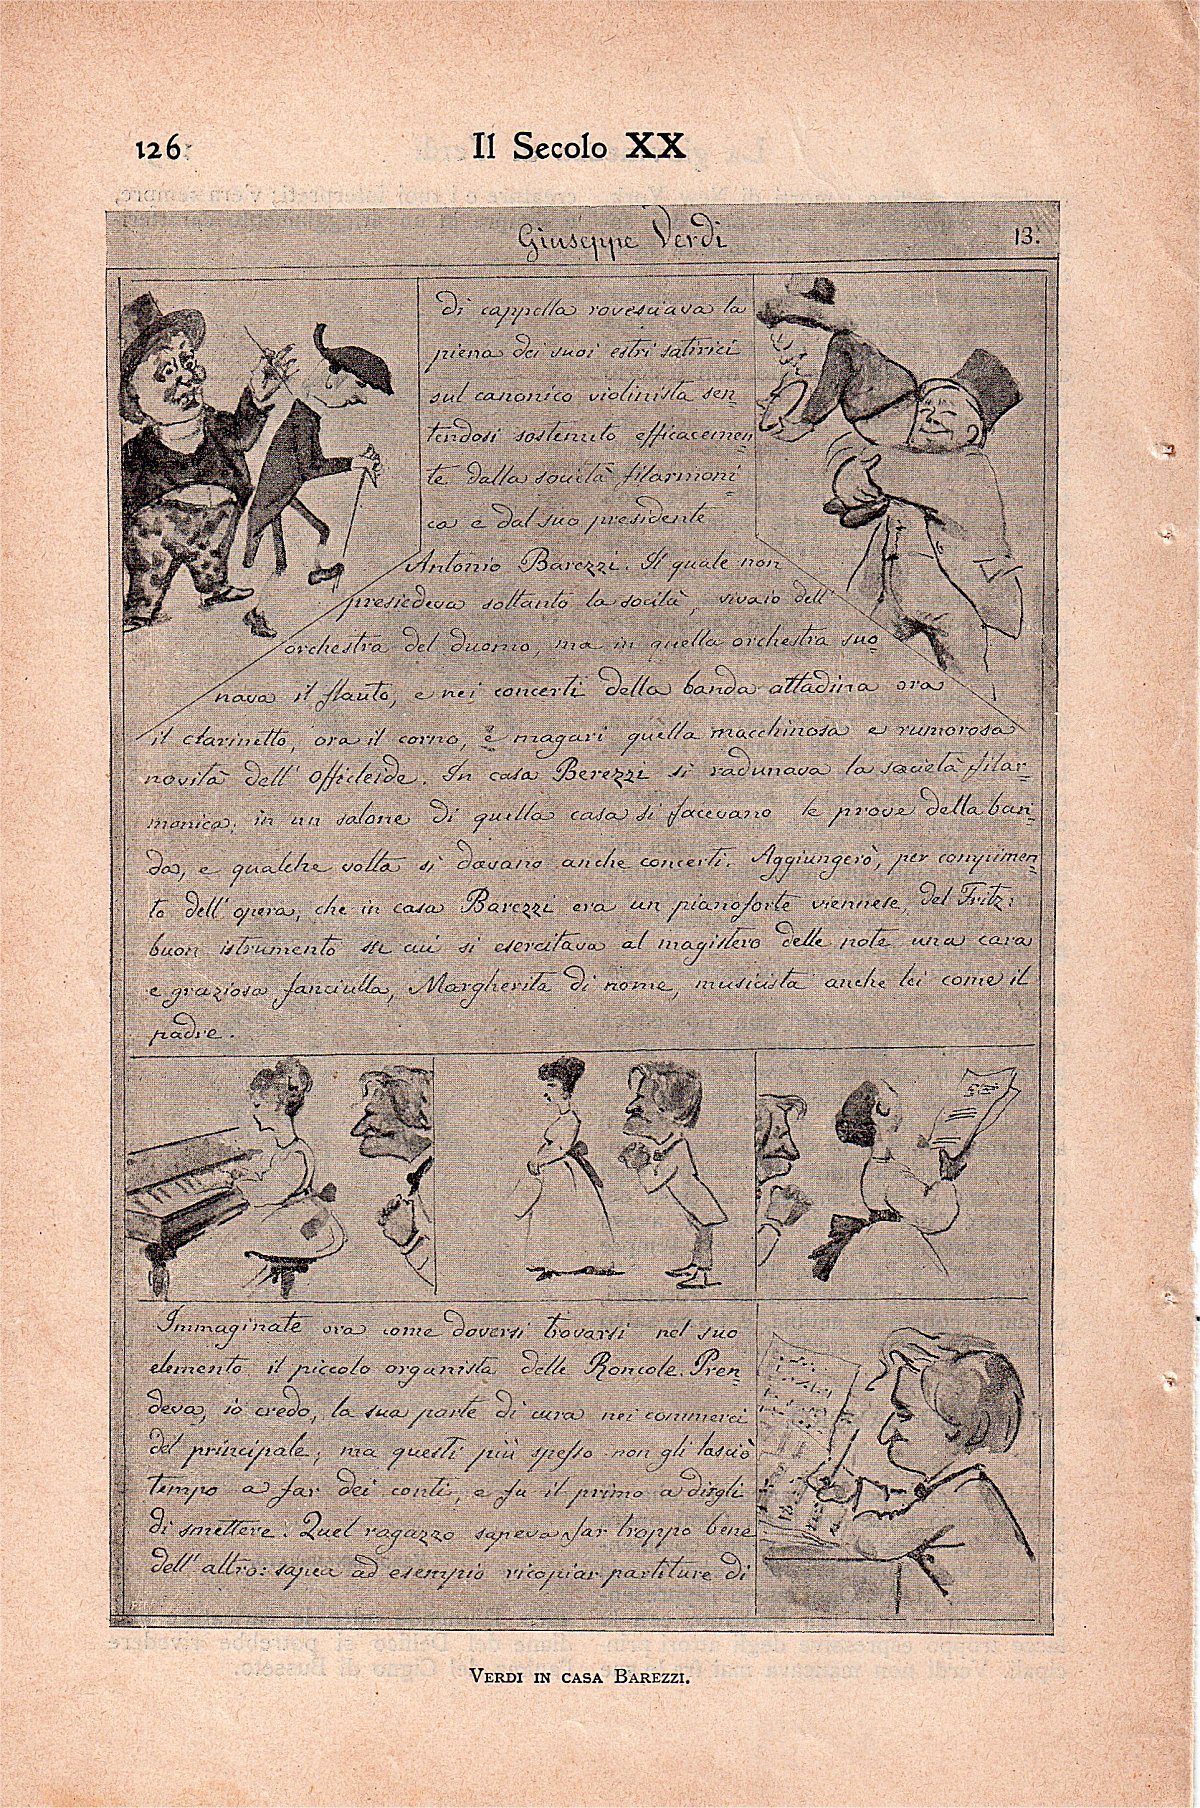 126
Il Secolo XX
Giuseppe Verdi
13.
di cappella rovesciava la
piena dei suoi estri satirici
sul canonico violinista sen-
tendosi sostenuto efficacemen-
te dalla società filarmoni-
ca e dal suo presidente
Antonio Barezzi. Il quale non
presiedeva soltanto la socità, vivaio dell'
orchestra del duomo, ma in quella orchestra suo-
nava il flauto, e nei concerti della banda cittadina ora
il clarinetto, ora il corno, e magari quella macchinosa e rumorosa
novità dell' officleide. In casa Berezzi si radunava la società filar-
monica, in un salone di quella casa si facevano le prove della ban-
da, e qualche volta si davano anche concerti. Aggiungerò, per compimen-
to dell' opera, che in casa Barezzi era un pianoforte viennese, del Fritz:
buon istrumento su cui si esercitava al magistero delle note una cara
e graziosa fanciulla, Margherita di nome, musicista anche lei come il
padre.
Immaginate ora come doversi trovarsi nel suo
elemento il piccolo organista delle Roncole. Pren-
deva, io credo, la sua parte di cura nei commerci
del principale; ma questi più spesso non gli lasciò
tempo a far dei conti, e fu il primo a dirgli
di smettere. Quel ragazzo sapeva far troppo bene
dell' altro: sapea ad esempio ricopiar partiture di
Verdi in casa Barezzi.